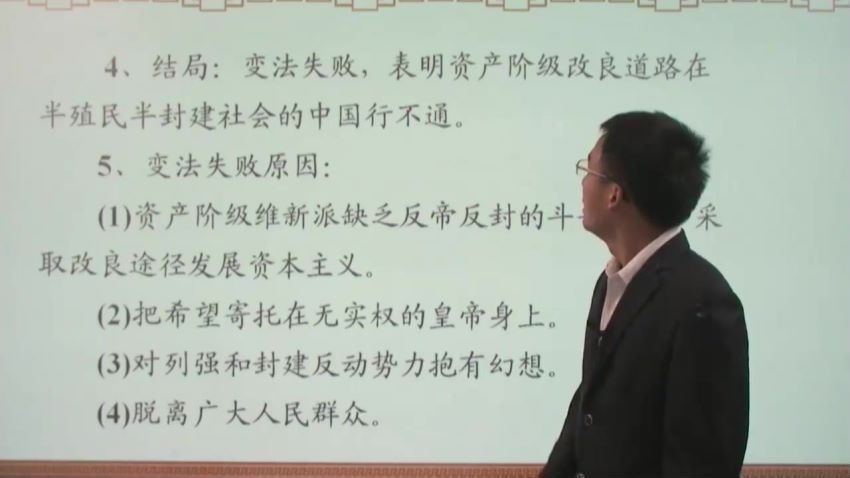 4、结局：变法失败，表明资产阶级改良道路在
半殖民半封建社会的中国行不通。
5、变法失败原因：
(1)资产阶级维新派缺乏反帝反封的斗 采
取改良途径发展资本主义。
(2)把希望寄托在无实权的皇帝身上。
(3)对列强和封建反动势力抱有幻想。
(4)脱离广大人民群众。